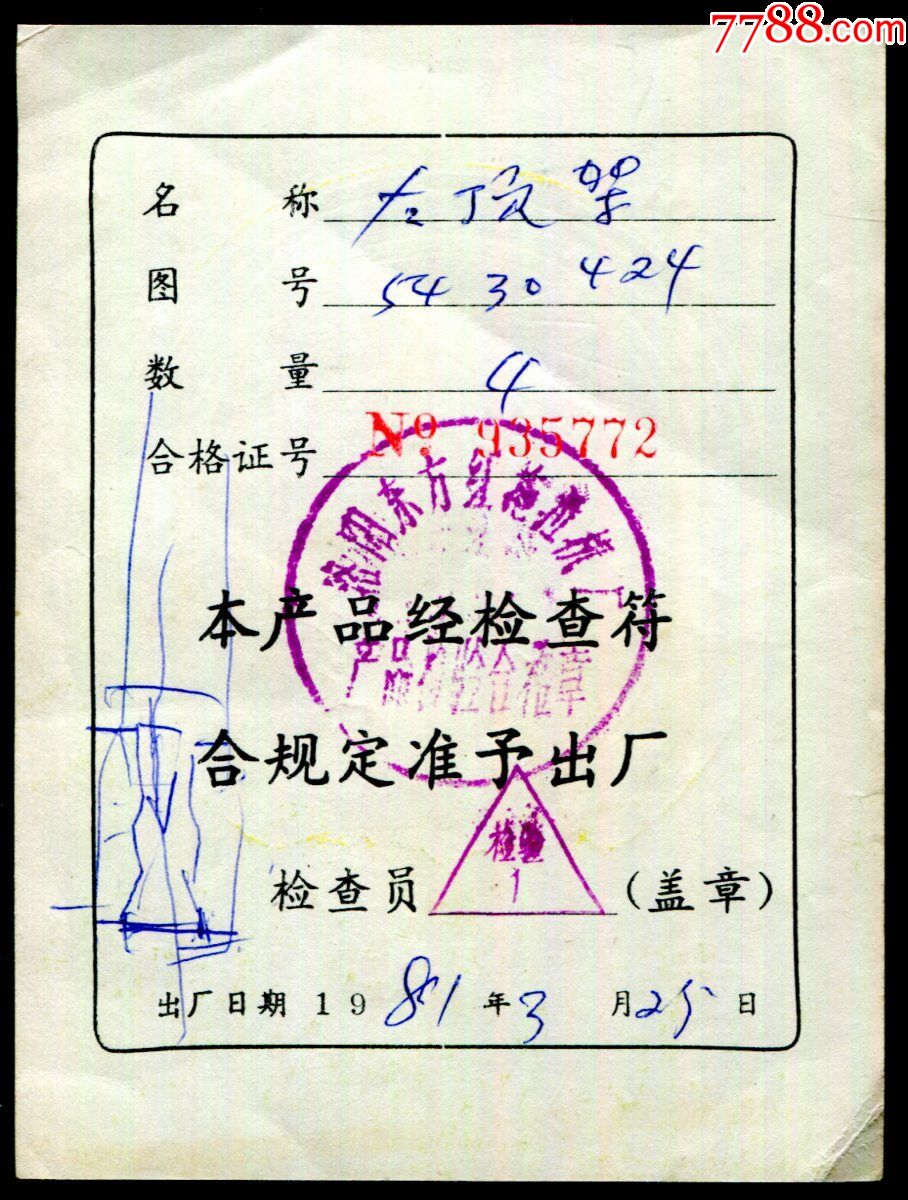 7788.com
名称 左顶架
图号 5430424
数量 4
合格证号 № 935772
洛阳东方红拖拉机厂
产品检验合格章
本产品经检查符
合规定准予出厂
检验
1
检查员 (盖章)
出厂日期 1981年3月25日